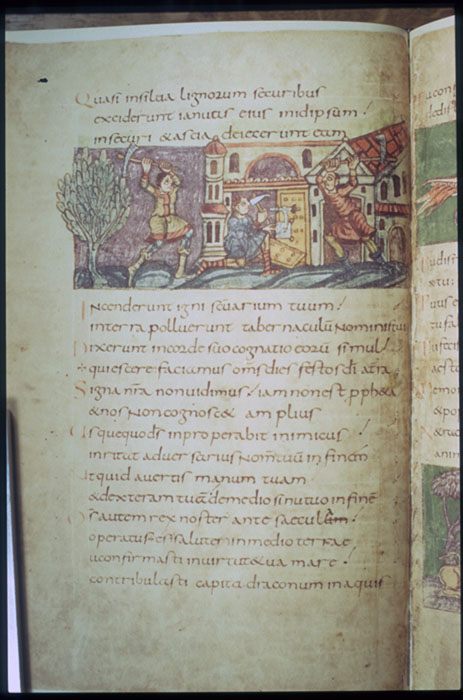 Quasi insilua lignorum securibus
exciderunt ianuas eius inidipsum
insecuri & ascia deiecerunt eam
Incenderunt igni scuarium tuum
interra polluerunt tabernaculū nominis tui
Dixerunt incorde suo cognatio eorū simul
quiescere faciamus om̄s dies festos dī aterra
Signa nr̄a nonuidimus iam nonest pph&a
& nos non cognosc& amplius
Usquequo ds̄ inproperabit inimicus
inritat aduersarius nom̄ tuū in finem
Utquid auertis manum tuam
& dexteram tuā demedio sinu tuo in finē
Ds̄ autem rex noster ante saeculum
operatus est salutem inmedio terrae
Tu confirmasti inuirtute tua mare
contribulasti capita draconum inaquis